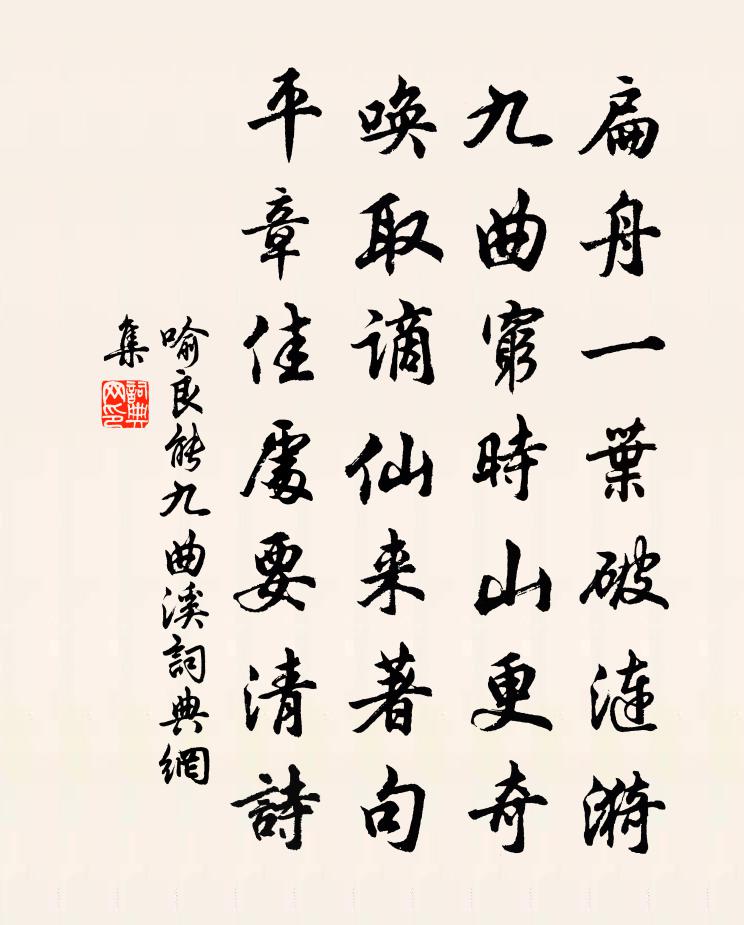 扁舟一葉破漣漪
九曲窮時山更奇
喚取謫仙来著句
平章佳處要清詩
喻良能九曲溪詞典網
集
詞典網印